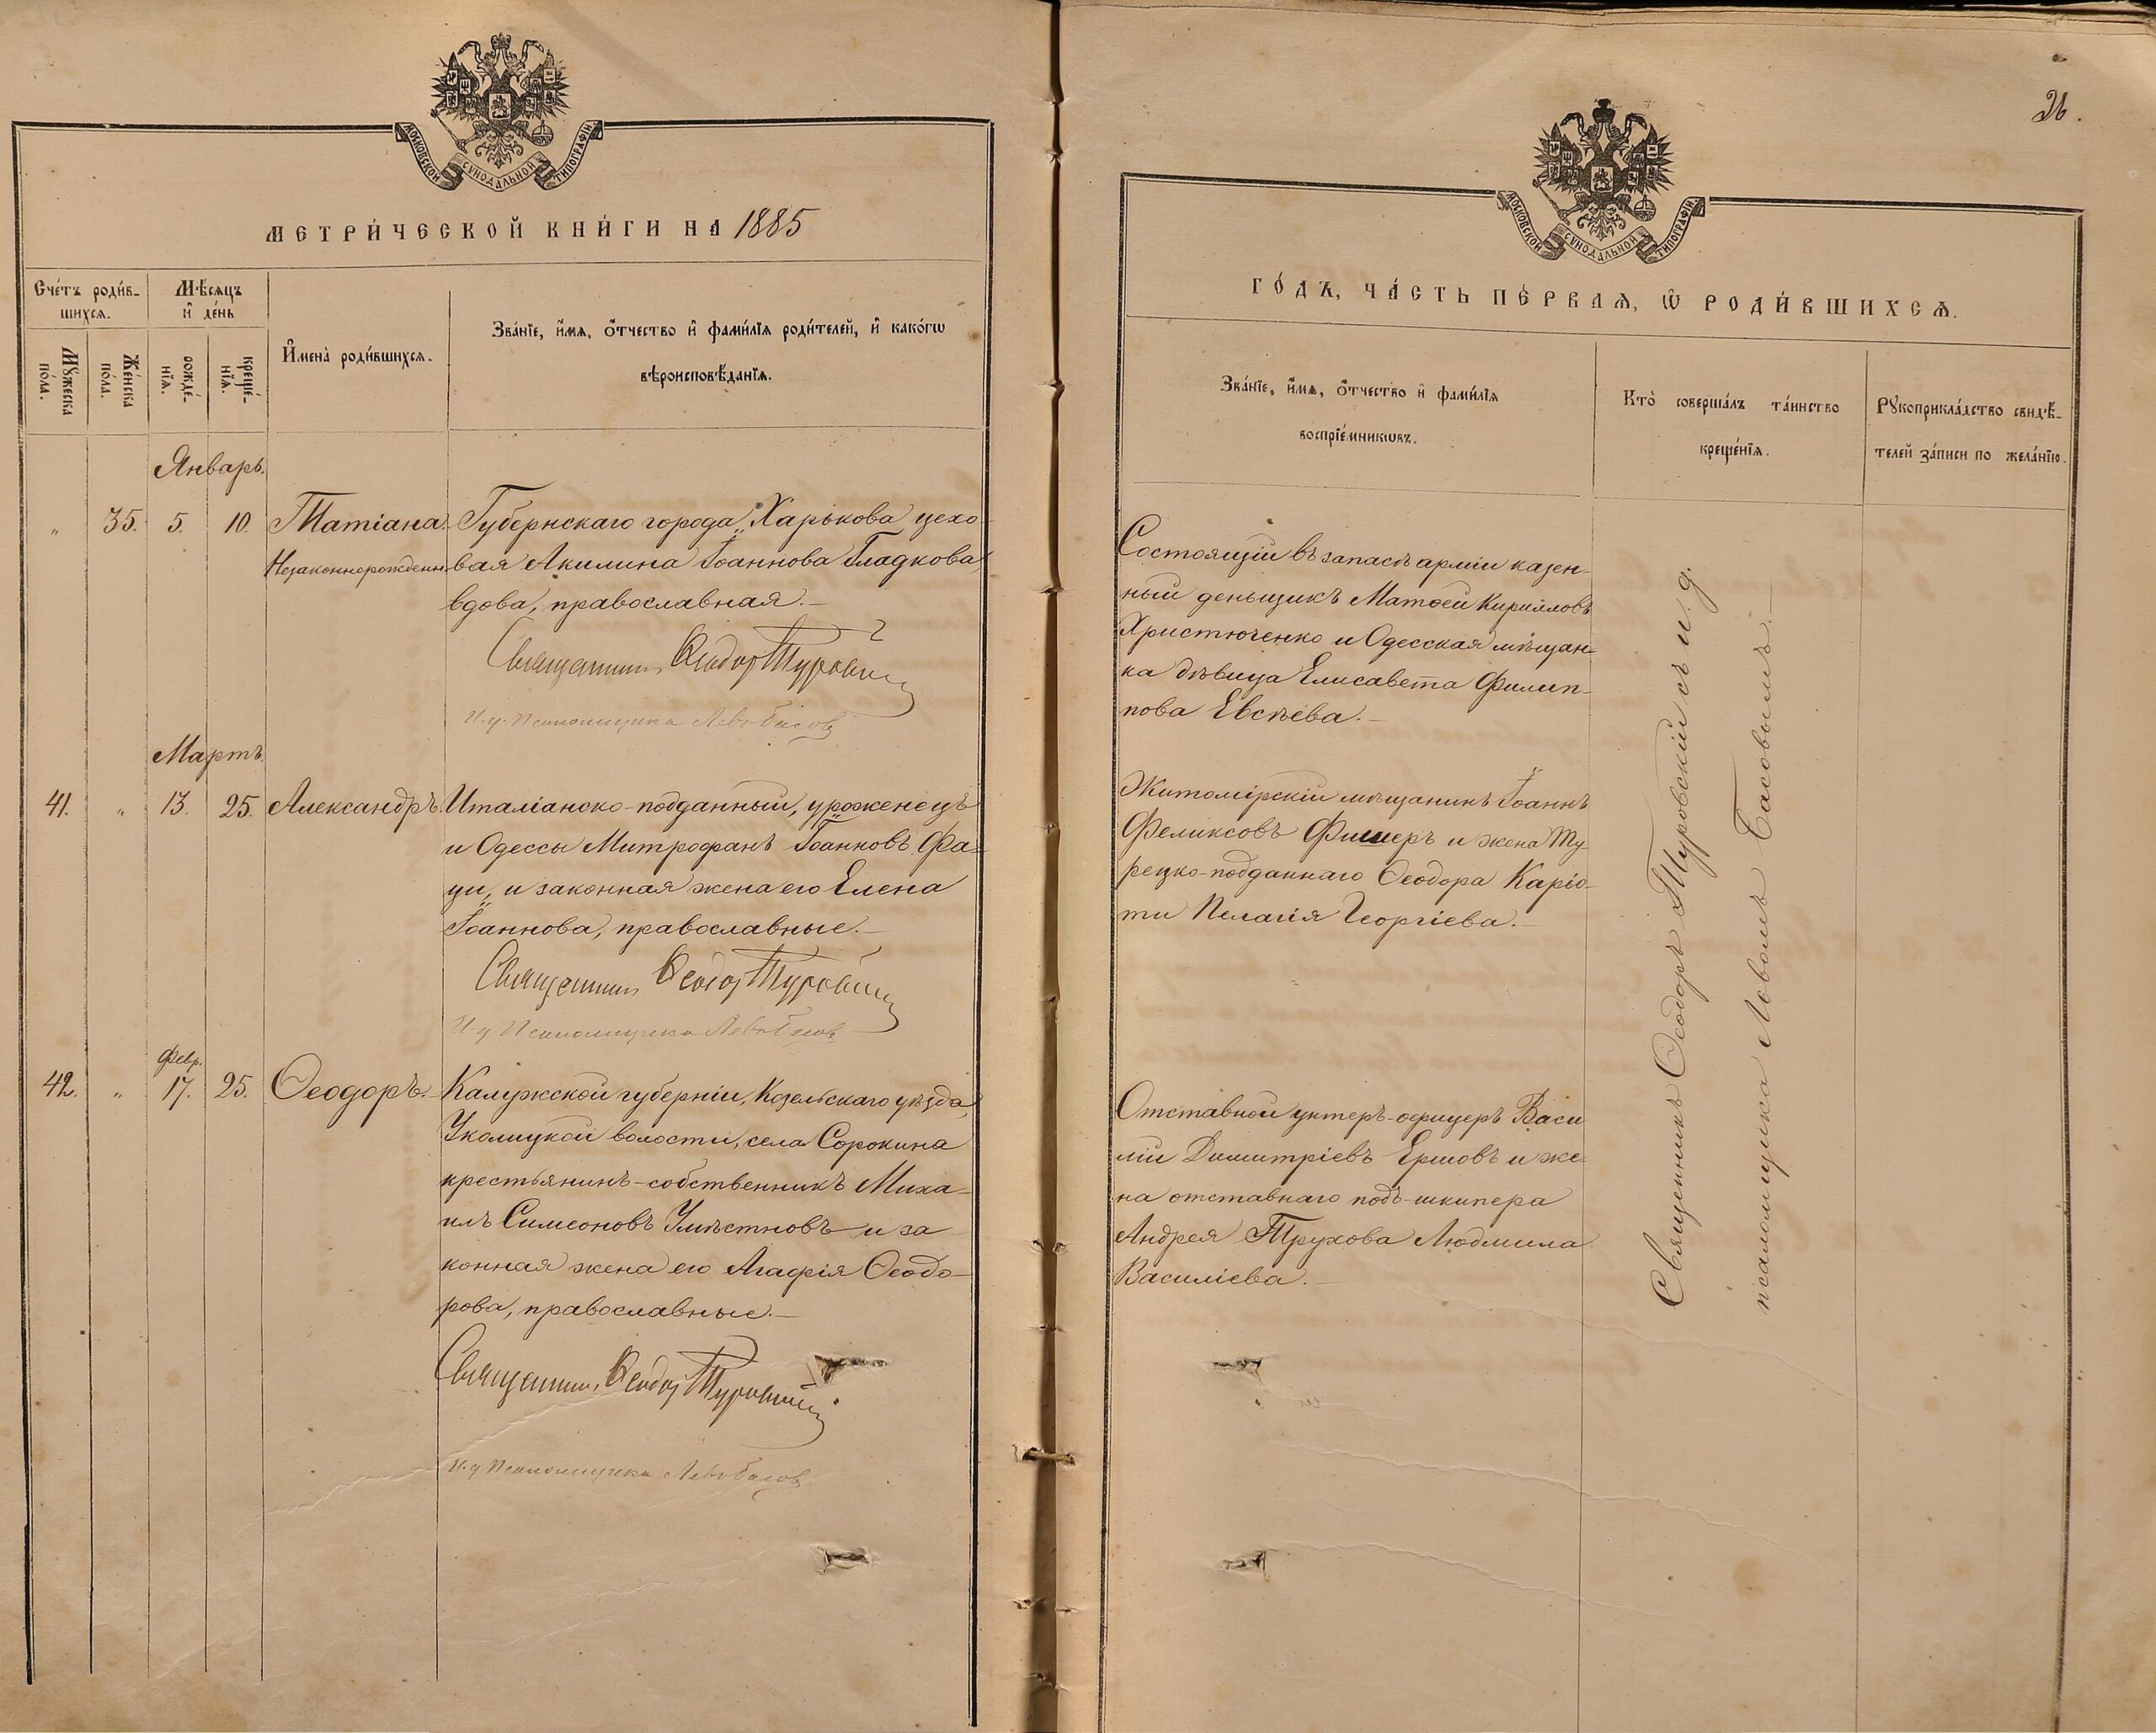 МОСКОВСКОЙ СѴНОДАЛЬНОЙ ТИПОГРАФІИ
МЕТРИ́ЧЕСКОЙ КНИ́ГИ НА 1885
Сче́тъ роди́в-
шихсѧ.
Мѣ́сѧцъ
и҆ де́нь
Мꙋ́жеска
по́ла.
Же́нска
по́ла.
рожде́-
нїѧ.
креще́-
нїѧ.
И҆мена̀ роди́вшихсѧ.
Зва́нїе, и҆́мѧ, ѻ҆́тчество и҆ фами́лїѧ роди́телей, и҆ како́гѡ
вѣроисповѣ́данїѧ.
Январь.
" 35. 5. 10. Татіана.
Незаконнорожденн.
Губернскаго города Харькова цехо-
вая Акилина Іоаннова Гладкова,
вдова, православная.–
Священникъ Ѳеодоръ Туровскій
И. д. Псаломщика Левъ Басовъ
Мартъ.
41. " 13. 25. Александръ.
Италіанско-подданный, уроженецъ
и Одессы Митрофанъ Іоанновъ Фа-
ци, и законная жена его Елена
Іоаннова, православные.–
Священникъ Ѳеодоръ Туровскій
И д Псаломщика Левъ Басовъ
Февр.
42. " 17. 25. Ѳеодоръ.
Калужской губерніи, Козельскаго уѣзда,
Уколицкой волости, села Сорокина
крестьянинъ-собственникъ Миха-
илъ Симеоновъ Умѣстновъ и за
конная жена его Агафія Ѳеодо-
рова, православные.–
Священникъ Ѳеодоръ Туровскій
И. д Псаломщика Левъ Басовъ
26.
МОСКОВСКОЙ СѴНОДАЛЬНОЙ ТИПОГРАФІИ
ГО́ДЪ, ЧА́СТЬ ПЕ́РВАѦ, Ѡ҆ РОДИ́ВШИХСѦ.
Зва́нїе, и҆́мѧ, ѻ҆́тчество и҆ фами́лїѧ
воспрїе́мникѡвъ.
Кто̀ соверша́лъ та́инство
креще́нїѧ.
Рꙋкоприкла́дство свидѣ́-
телей за́писи по жела́нїю.
Состоящій въ запасѣ арміи казен-
ный деньщикъ Матѳей Кирилловъ
Христюченко и Одесская мѣщан-
ка дѣвица Елисавета Филип-
пова Евсѣева.–
Житомірскій мѣщанинъ Іоаннъ
Феликсовъ Фишеръ и жена Ту-
рецко-подданнаго Ѳеодора Каріо-
ти Пелагія Георгіева.–
Отставной унтеръ-офицеръ Васи
лій Димитріевъ Ершовъ и же-
на отставнаго подъ-шкипера
Андрея Трухова Людмила
Василіева.–
Священникъ Ѳеодоръ Туровскій съ и. д.
псаломщика Львомъ Басовымъ.–